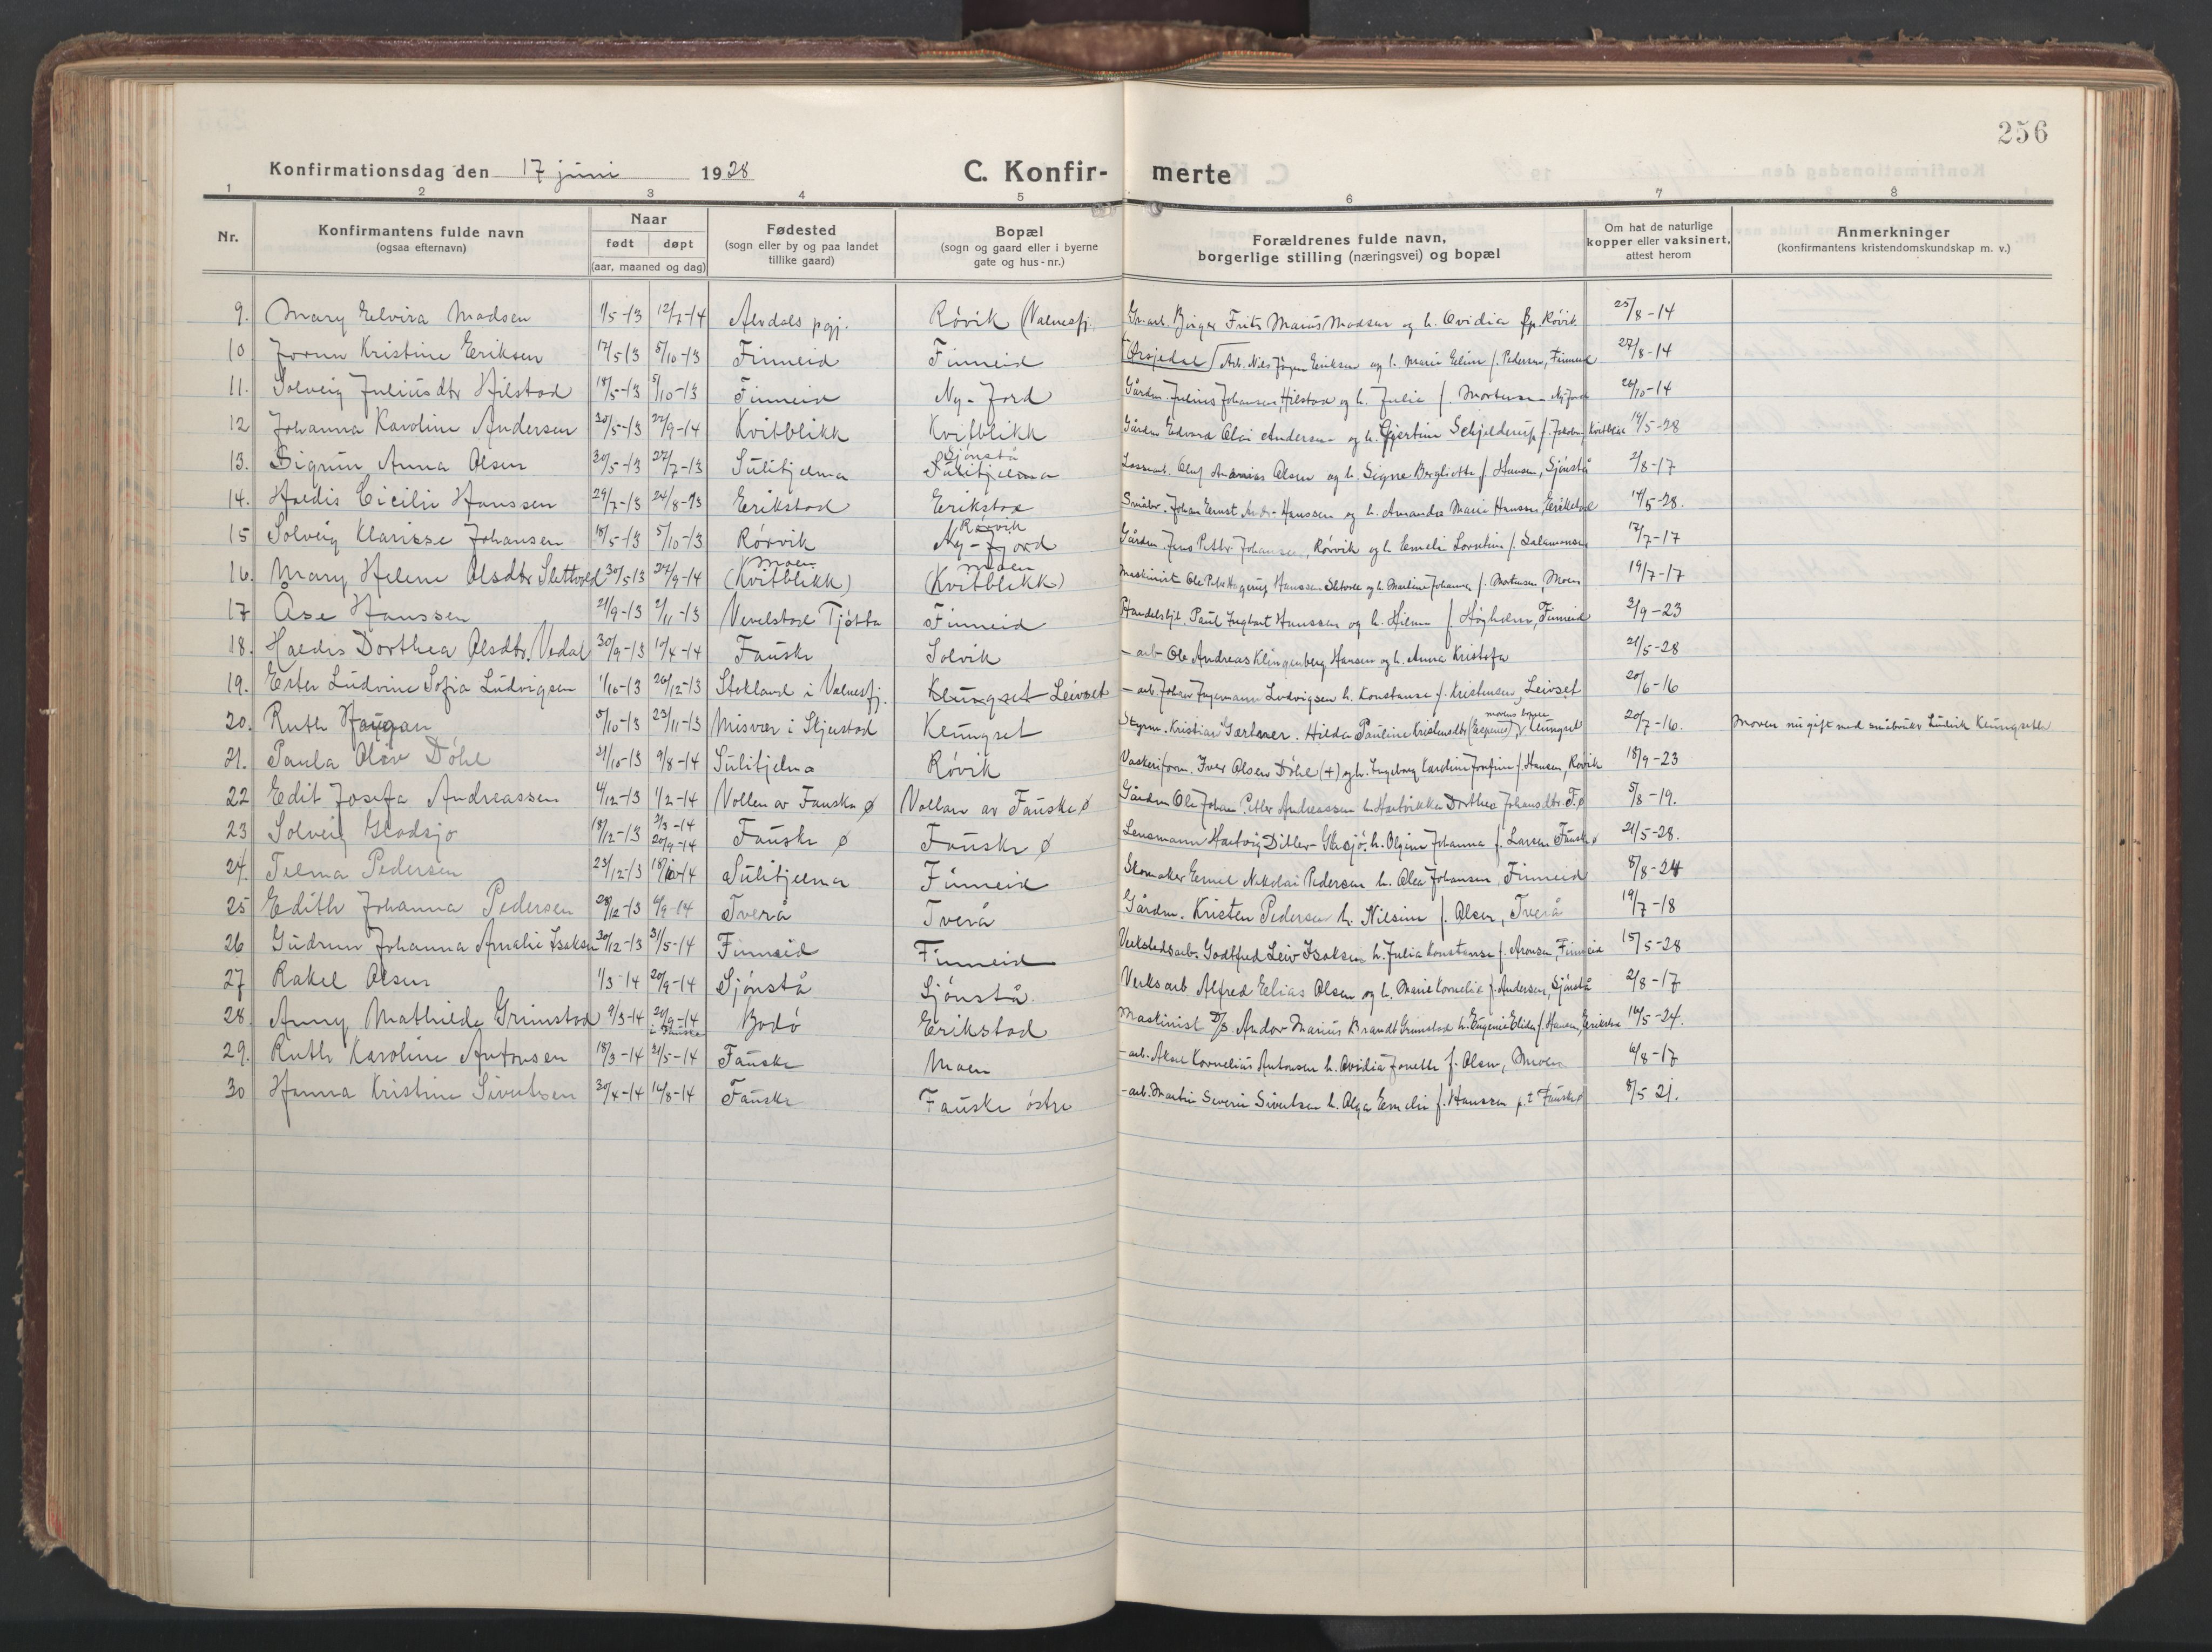 256
Konfirmationsdag den 17 juni 1928 C. Konfir- merte
1 2 3 4 5 6 7 8
Nr. Konfirmantens fulde navn (ogsaa efternavn) Naar født døpt (aar, maaned og dag) Fødested (sogn eller by og paa landet tillike gaard) Bopæl (sogn og gaard eller i byerne gate og hus-nr.) Forældrenes fulde navn, borgerlige stilling (næringsvei) og bopæl Om hat de naturlige kopper eller vaksinert, attest herom Anmerkninger (konfirmantens kristendomskundskap m. v.)
9. Mary Elvira Madsen 1/5-13 12/7-14 Alvdals pgj. Røvik (Valnesfj. Gr. arb. Birger Frits Marius Madsen og h. Ovidia Røvik. 25/8-14
10 Jorun Kristine Eriksen 17/5 13 5/10-13 Finneid Finneid Arb. Nils Jørgen Eriksen og h. Marie Eline f. Pedersen, Finneid 27/8-14
11. Solveig Juliusdtr Hilstad 18/5-13 5/10-13 Finneid Ny-Jord Gårdm. Julius Johansen Hilstad og h. Julie f. Mortensen Ny Jord 26/10-14
12 Johanna Karoline Andersen 30/5-13 22/9-14 Kvitblikk Kvitblikk Gårdm Edvard Olai Andersen og h. Gjertine Schjelderup f. Jakobs. Kvitblik 19/5-28
13. Sigrun Anna Olsen 30/5-13 27/7-13 Sulitjelma Sjønstå Sulitjelma Lossearb. Oluf Ananias Olsen og h. Signe Bergliotte f. Hansen, Sjønstå 2/8-17
14. Haldis Cicilie Hanssen 29/7-13 24/8-13 Erikstad Erikstad Småbr. Johan Ernst Hanssen og h. Amanda Marie Hanssen, Erikstad 19/5-28.
15 Solveig Klarisse Johansen 18/5-13 5/10-13 Rørvik Rørvik Ny-Jord Gårdm. Jens Petter Johansen, Rørvik og h. Emelie Lovutine f. Salamonsen 17/7-17
16. Mary Helene Olsdtr Slettvold 30/5 13 27/9-14 Moen (Kvitblikk) Moen (Kvitblikk) Maskinist Ole Peter Hagerup Hanssen Sletvold og h. Martine Johanna f. Mortensen, Moen 19/7-17
17 Åse Hanssen 21/9-13 2/11-13 Vevelstad Tjøtta Finneid Handelsbtj. Paul Ingbart Hanssen og h. Hilma f. Høgholm, Finneid 3/9-23
18. Haldis Dorthea Olsdtr. Vedal 30/9-13 10/4-14 Fauske Solvik - arb Ole Andreas Klingenberg Hansen og h. Anna Kristofa 21/5-28
19. Ester Ludvine Sofia Ludvigsen 1/10-13 26/12-13 Stokland i Valnesfj. Klungset Leivset - arb. Johan Ingemann Ludvigsen h. Konstanse f. Kristensen, Leivset 20/6-16
20. Ruth Haugan 5/10-13 23/11-13 Misvær i Skjerstad Klungset Styrm. Kristian Gærtner. Hilda Pauline Kristensdtr (Espenes) morens bopæl Klungset 20/7-16. Moren nu gift med småbruker Ludvik Klungseth
21. Paula Olav Døhl 21/10-13 9/8-14 Sulitjelma Røvik Vaskeriform. Iver Olsen Døhl (+) og h. Ingeborg Karoline Josefine f. Hansen, Røvik 18/9-23
22 Edit Josefa Andreassen 4/12-13 1/2-14 Vollen av Fauske ø Vollan av Fauske ø Gårdm Ole Johan Petter Andreassen h. Hartvikka Dorthea Johansdtr. F.ø 5/8-19.
23 Solveig Gladsjø 18/12-13 3/3-14 20/9-14 Fauske ø Fauske ø Lensmann Hartvig Ditlev Gladsjø, h. Olgine Johanna f. Larsen Fauske ø 21/5-28.
24. Telma Pedersen 23/12-13 18/10-14 Sulitjelma Finneid Skomaker Ernel Nikolai Pedersen h. Olea Johansen, Finneid 8/8-24
25 Edith Johanna Pedersen 28/12-13 6/9-14 Tverå Tverå Gårdm. Kristen Pedersen h. Nilsine f. Olsen, Tverå 19/7-18
26 Gudrun Johanna Amalie Isaksen 30/12-13 31/5-14 Finneid Finneid Verkstedsarb. Godtfred Leiv Isaksen h. Julia Konstanse f. Aronsen, Finneid 15/5-28
27 Rakel Olsen 1/3-14 20/9-14 Sjønstå Sjønstå Verksarb Alfred Elias Olsen og h. Marie Kornelia f. Andersen, Sjønstå 2/8-17
28. Anny Mathilde Grimstad 9/3-14 20/9-14 i Fauske Bodø Erikstad Maskinist D/s. Andor Marius Brandt Grimstad h. Eugenie Elida f. Hansen, Erikstad 16/5-24.
29. Ruth Karoline Antonsen 18/3-14 21/5-14 Fauske Moen - arb. Aksel Kornelius Antonsen h. Ovidia Jonette f. Olsen, Moen 6/8-17
30 Hanna Kristine Sivertsen 30/4-14 16/8-14 Fauske Fauske østre - arb. Martin Severin Sivertsen h. Olga Emelie f. Hanssen p.t Fauske ø 8/5 21.